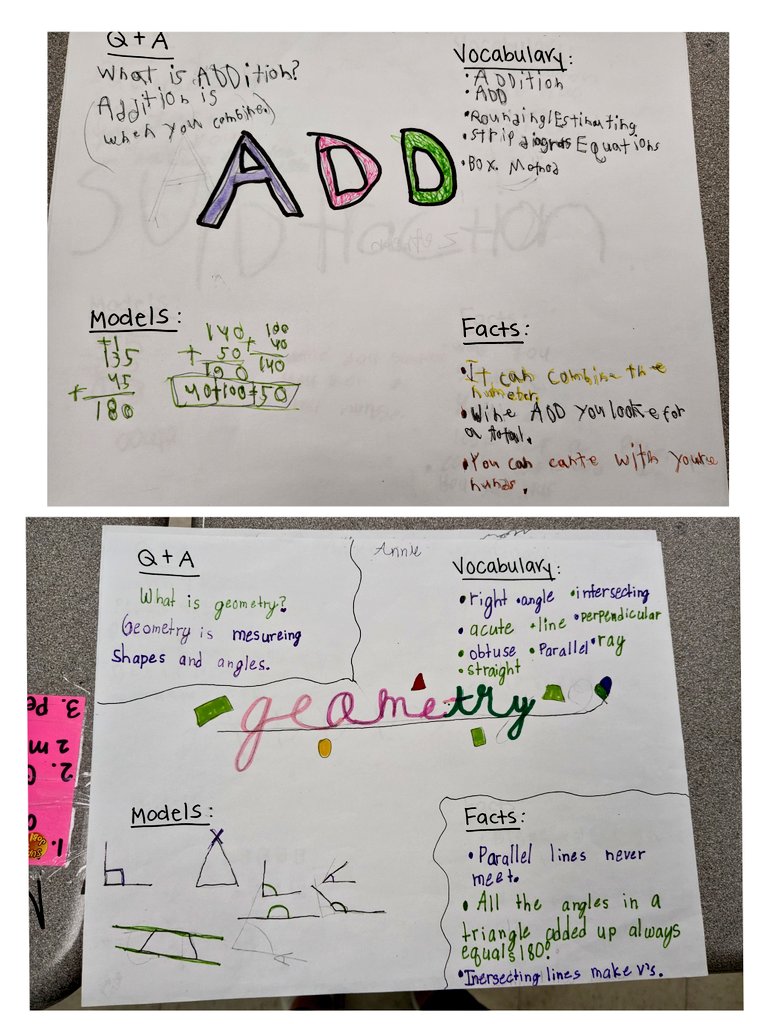 Q + A
What is ADDition?
(Addition is
when you combine.)
Vocabulary:
• Addition
• ADD
• Rounding/Estimating
• Strip Equations
• Box Method
ADD
Models:
+1
135
+ 45
180
140
+ 50
190
100
+ 40
140
40+100+50
Facts:
• It can combine the
• Wine ADD you looke for
a total.
• You can carte with youre
Q + A
What is geometry?
Geometry is mesureing
shapes and angles.
Annie
Vocabulary:
• right • angle • intersecting
• acute • line • perpendicular
• obtuse • Parallel • ray
• straight
geometry
Models:
Facts:
• Parallel lines never
meet.
• All the angles in a
triangle added up always
equals 180°.
• Inersecting lines make v's.
3. Pe
2 m
2.
1.